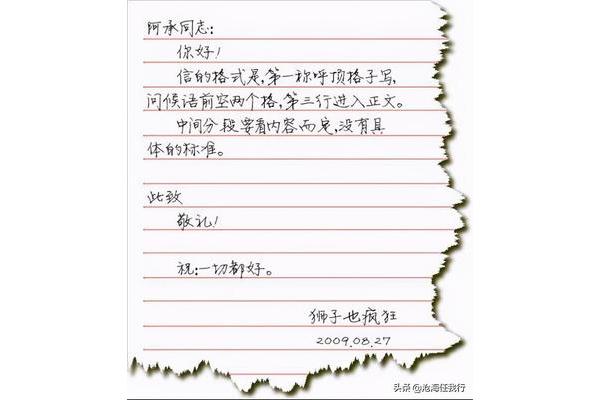 阿承同志:
你好!
信的格式是,第一称呼顶格子写,
问候语前空两个格,第三行进入正文。
中间分段要看内容而定,没有具
体的标准。
此致
敬礼!
祝:一切都好。
狮子也疯狂
2009.08.27
头条@沧海任我行